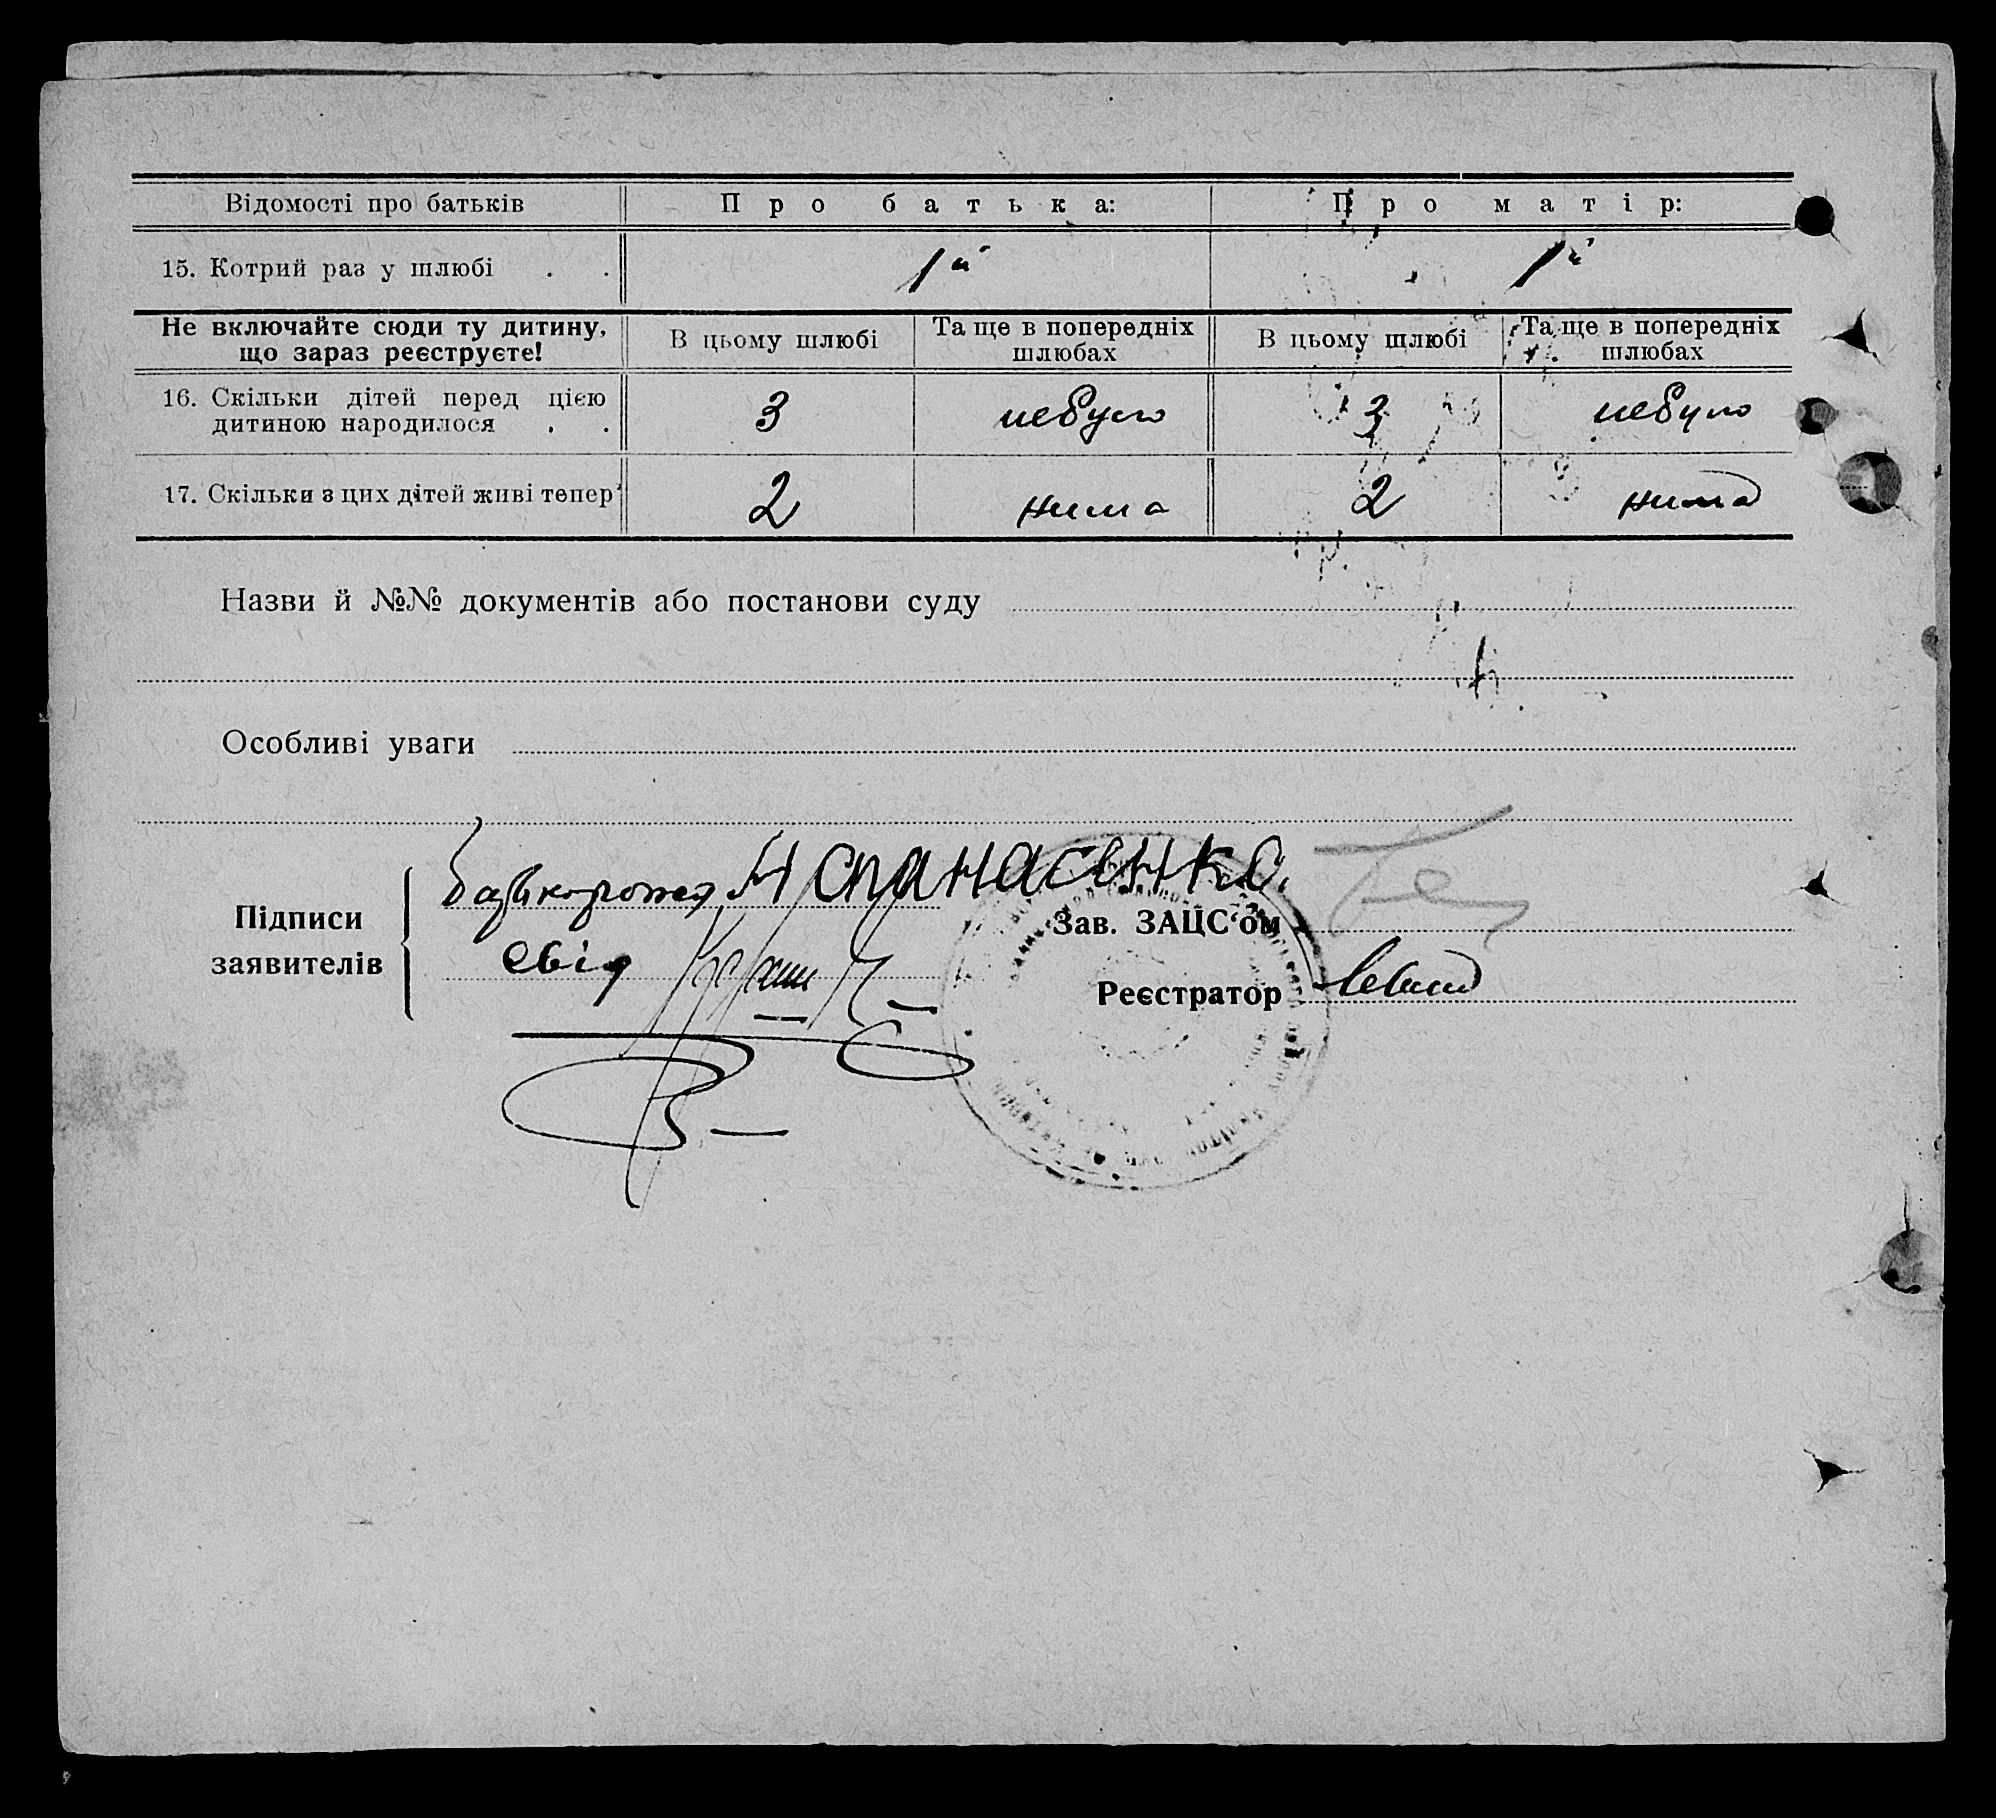 Відомості про батьків Про батька: Про матір:
15. Котрий раз у шлюбі . . 1й 1й
Не включайте сюди ту дитину, що зараз реєструєте! В цьому шлюбі Та ще в попередніх шлюбах В цьому шлюбі Та ще в попередніх шлюбах
16. Скільки дітей перед цією дитиною народилося . . 3 небуло 3 небуло
17. Скільки з цих дітей живі тепер 2 нима 2 нима
Назви й №№ документів або постанови суду
Особливі уваги
Підписи заявителів
Панасенко.
свід
Зав. ЗАЦС'ом
Реєстратор